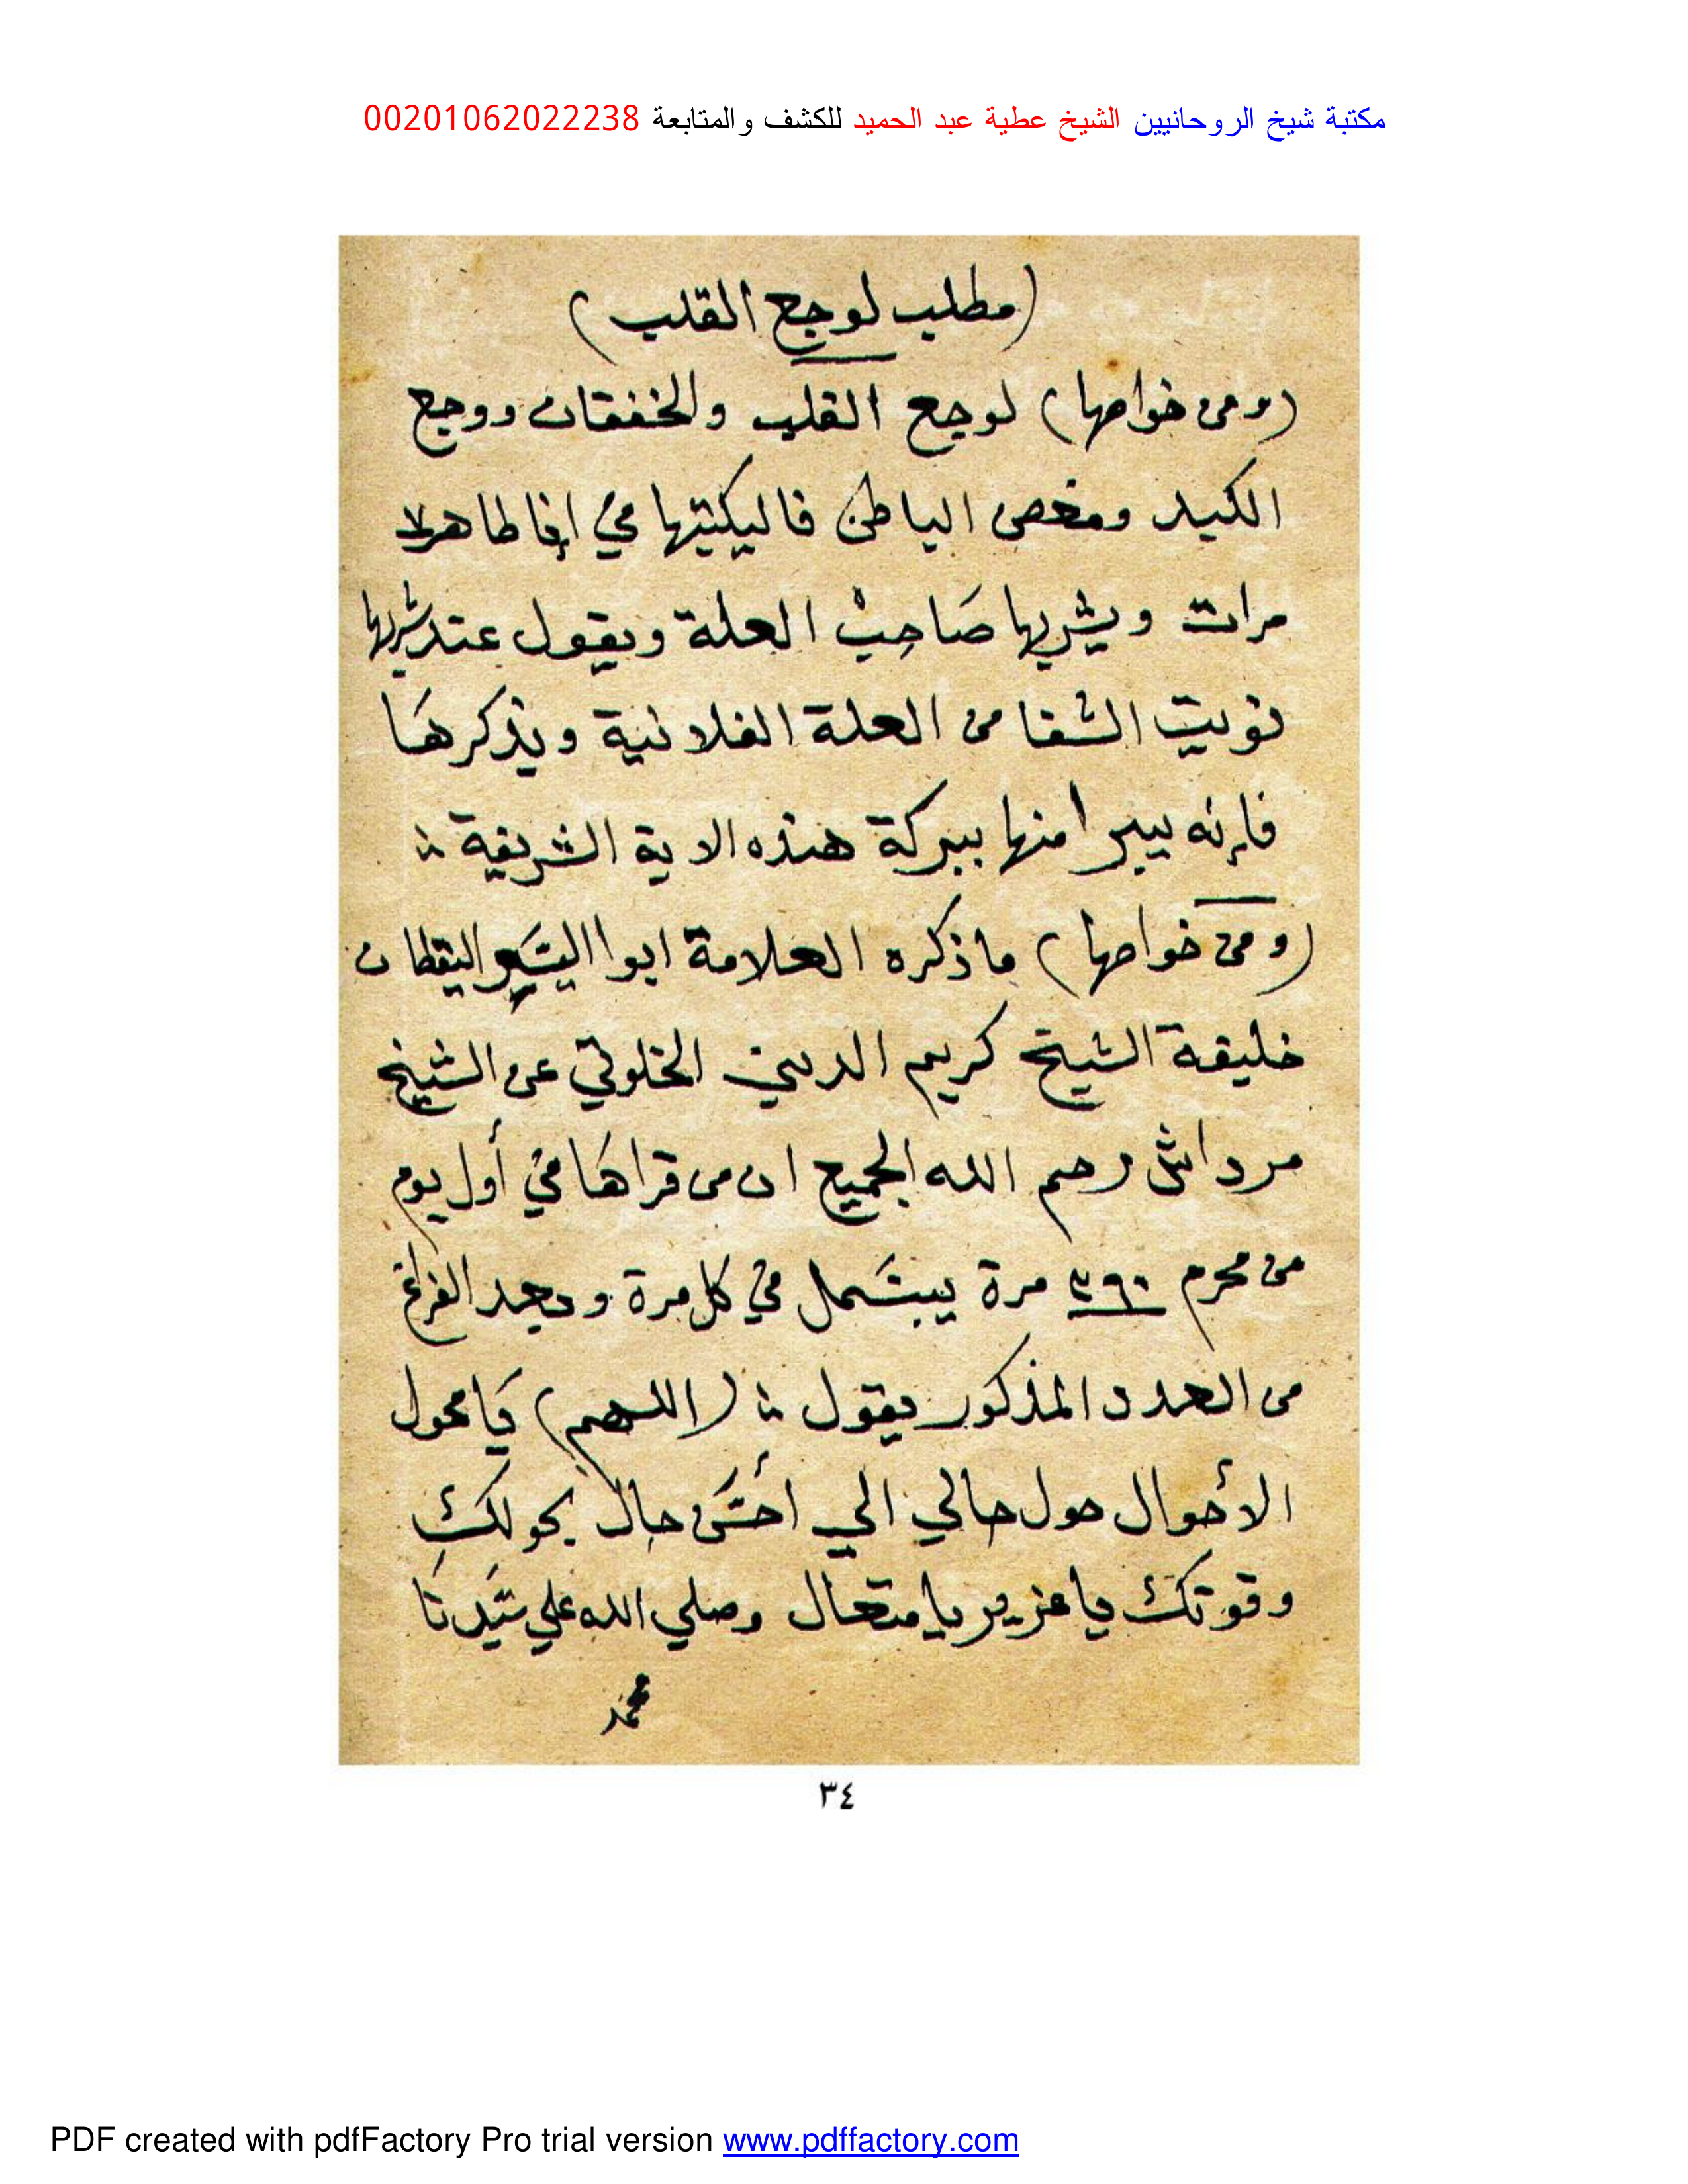 مكتبة شيخ الروحانيين الشيخ عطية عبد الحميد للكشف والمتابعة 00201062022238
(مطلب لوجع القلب)
(ومن خواصها) لوجع القلب والخفقان ووجع
الكبد ومغص الباطن فاليكتبها في إنا طاهر
مرات ويشربها صَاحِبْ العلة ويقول عند شربها
نويت الشفا من العلة الفلانية ويذكرهَا
فإنه يبرا منها ببركة هذه الاية الشريفة
(ومن خواصها) ما ذكره العلامة ابوا اليقظان
خليفة الشيخ كريم الدين الخلوتي عن الشيخ
مرداش رحم الله الجميع ان من قراهَا في أول يوم
من محرم ٣٦٠ مرة يبسمل في كل مرة وبعد الفراغ
من العدد المذكور يقول (اللهم) يَا محول
الأحوال حول حالي الي أحسَن حال بحولك
وقوتك يا عزيز يا متعال وصلي الله علي سَيدنَا
محمد
٣٤
PDF created with pdfFactory Pro trial version www.pdffactory.com